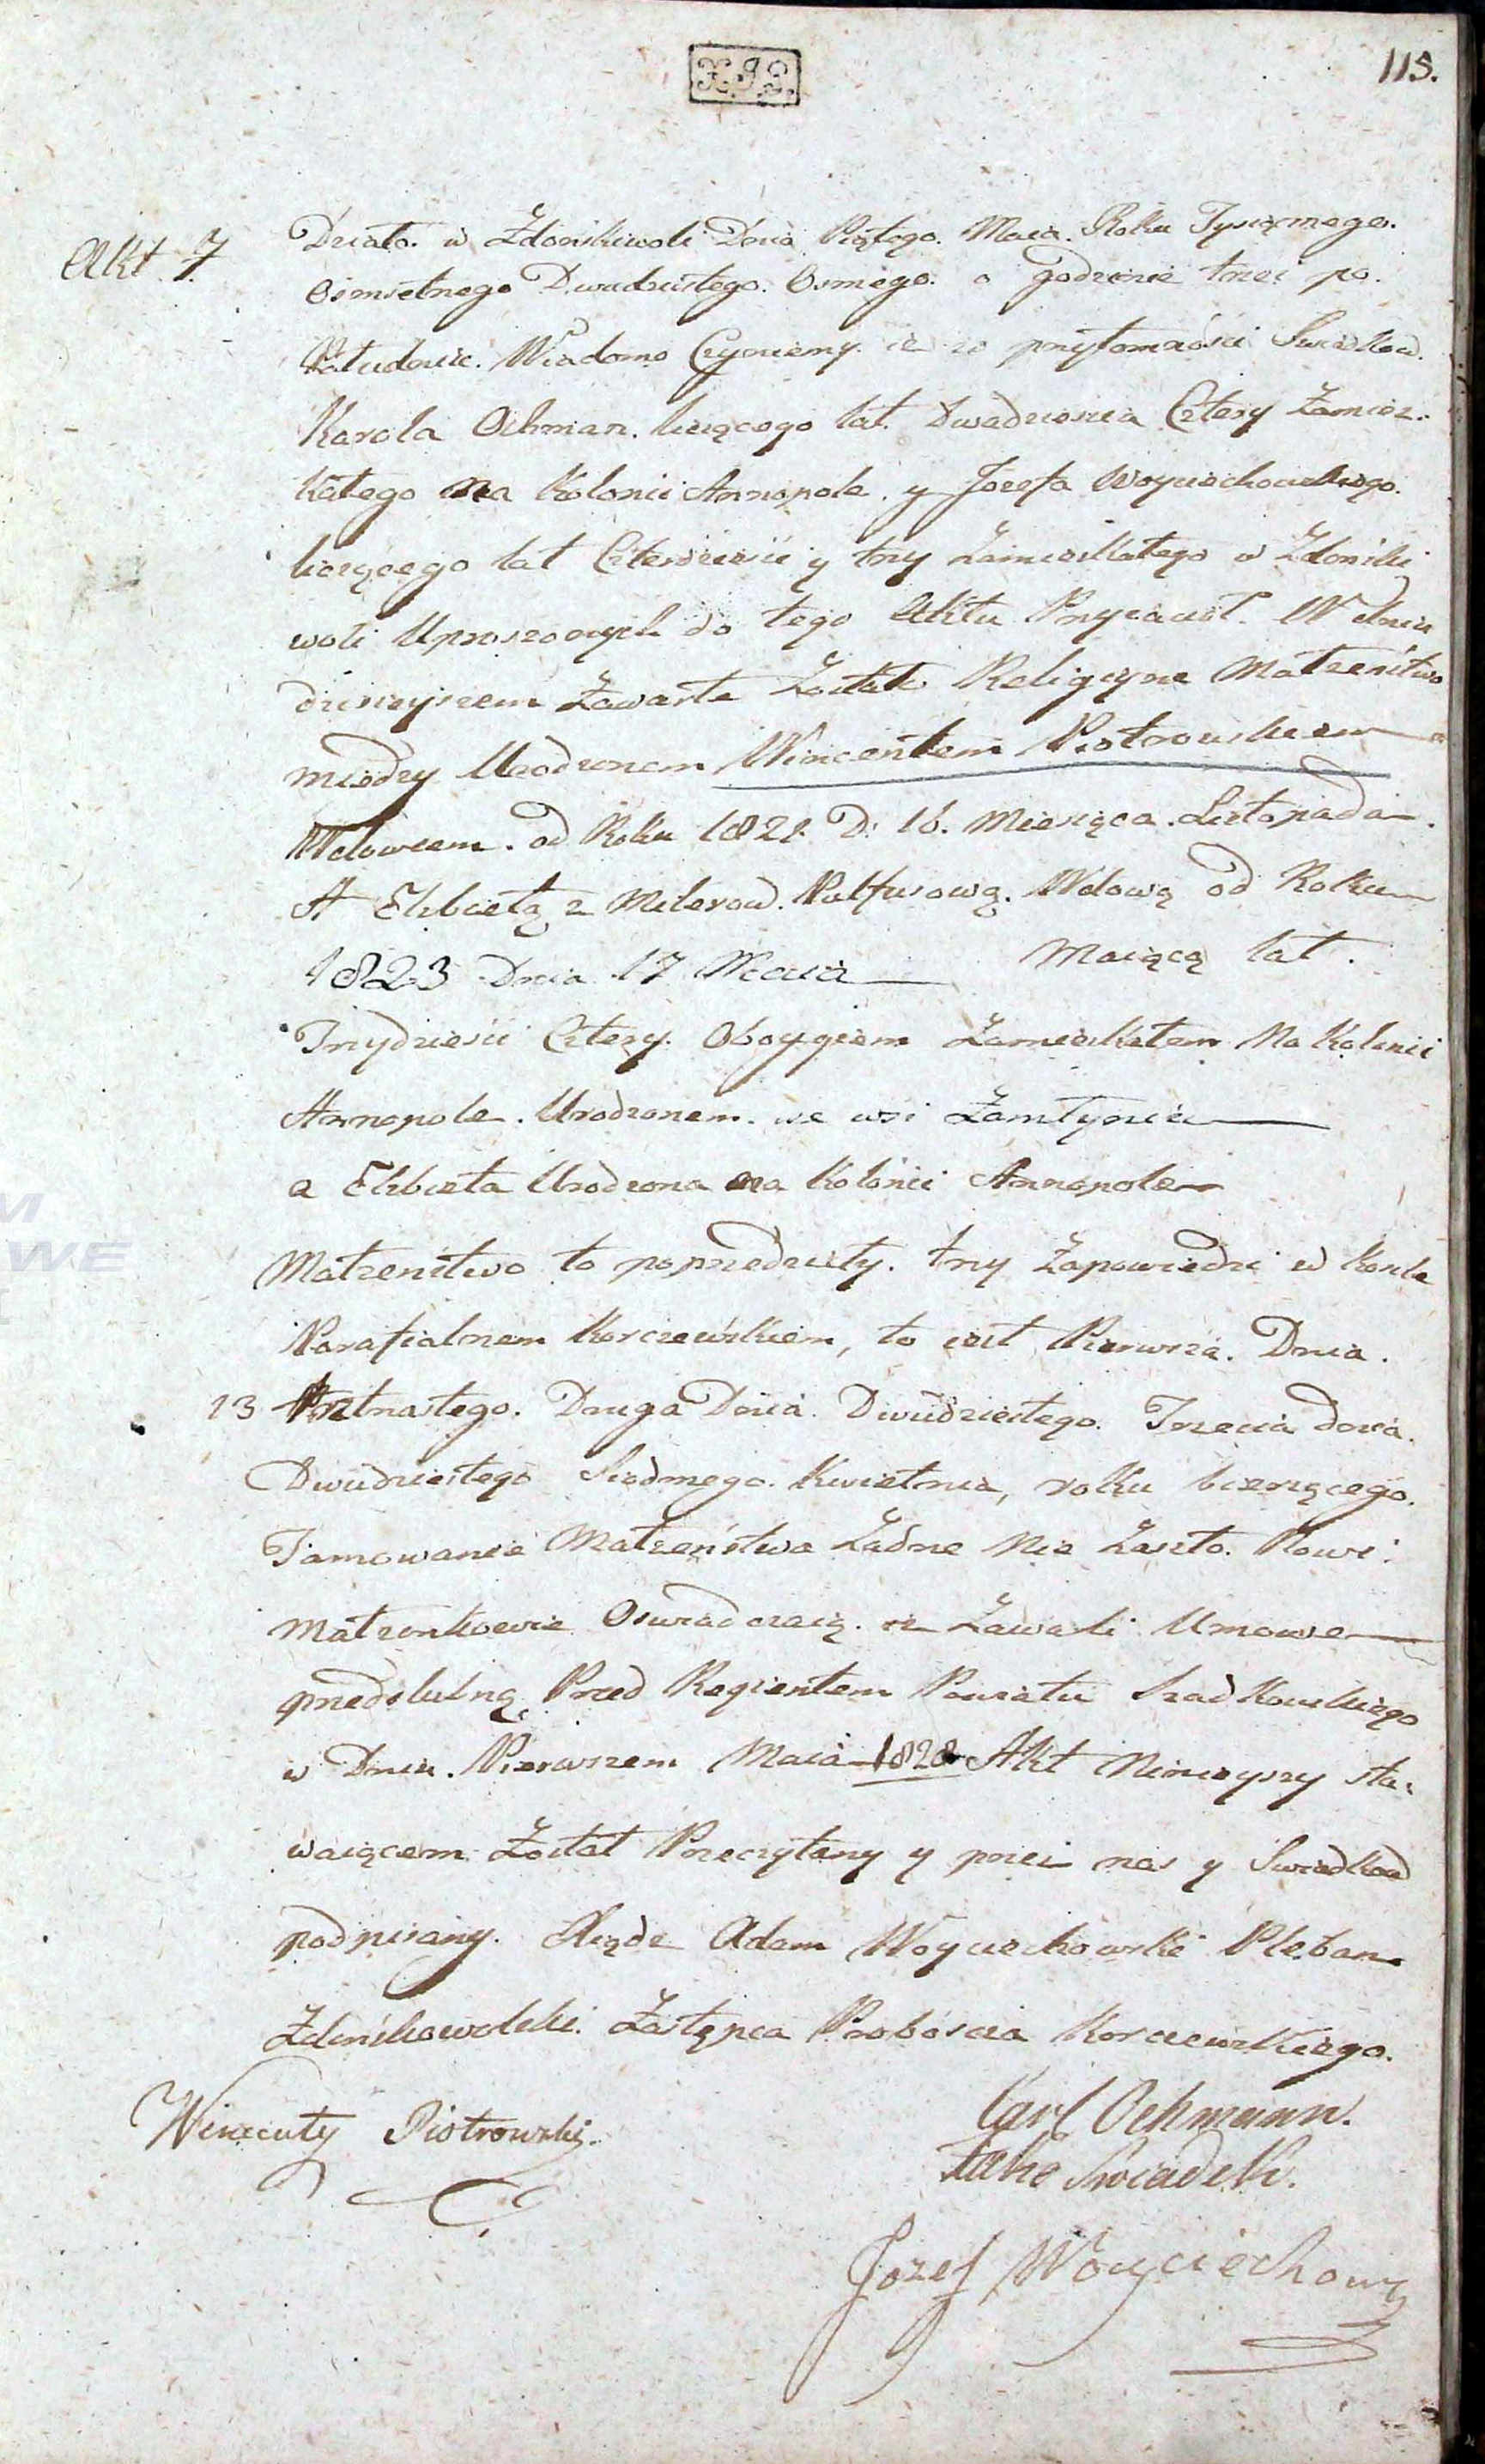 115.
X.J.P.
Akt 7
Działo w Zdonskiwoli Dnia Piątego Maia Roku Tysiącznego
Osmsetnego Dwudziestego Osmego o godzinie trzei po
Południe. Wiadomo Czyniemy iż w przytomności Swiadkow
Karola Ochman liczącego lat Dwadziescia Cztery Zamiesz-
kałego na Kolonii Annopole y Jozefa Woyciechowskiego
liczącego lat Czterdziescii y trzy Zamieszkałego w Zdonski
woli Uproszonych do tego Aktu Przyiaciół. W dniu
dzisieyszem Zawarte Zostało Religiyne Małzenstwo
miedzy Urodzonem Wincentem Piotrowskiem
Wdowcem od Roku 1821. D: 16. Miesiąca Listopada
A Elzbietą z Milerow Pulfusową Wdową od Roku
1823 Dnia 17 Maia Maiącą lat
Trzydziescii Cztery Oboygiem Zamieszkałem Na Kolonii
Annopole. Urodzonem we wsi Zamłyniu
a Elzbieta Urodzona na Kolonii Annopole
Małzenstwo to poprzedziły trzy Zapowiedzi w Kosciele
Parafialnem Korczewskiem, to iest Pierwsza Dnia
13 Trzynastego. Druga Dnia Dwudziestego. Trzecia dnia
Dwudziestego Siodmego Kwietnia, roku biezącego.
Tamowanie Małzeństwa Zadne Nie Zaszło. Nowi
Małzonkowie Oswiadczaią ze Zawarli Umowe
przedslubną Przed Regientem Powiatu Szadkowskiego
w Dniu Pierwszem Maia 1828 Akt Ninieyszy sta-
waiącem Został Przeczytany y przez nas y Swiadkow
podpisany. Xiądz Adam Woyciechowski Pleban
Zdunskowolski Zastępca Proboscza Korczewskiego.
Wincenty Piotrowski
Carl Ochmann.
Jako Swiadek.
Jozef Woyciechows